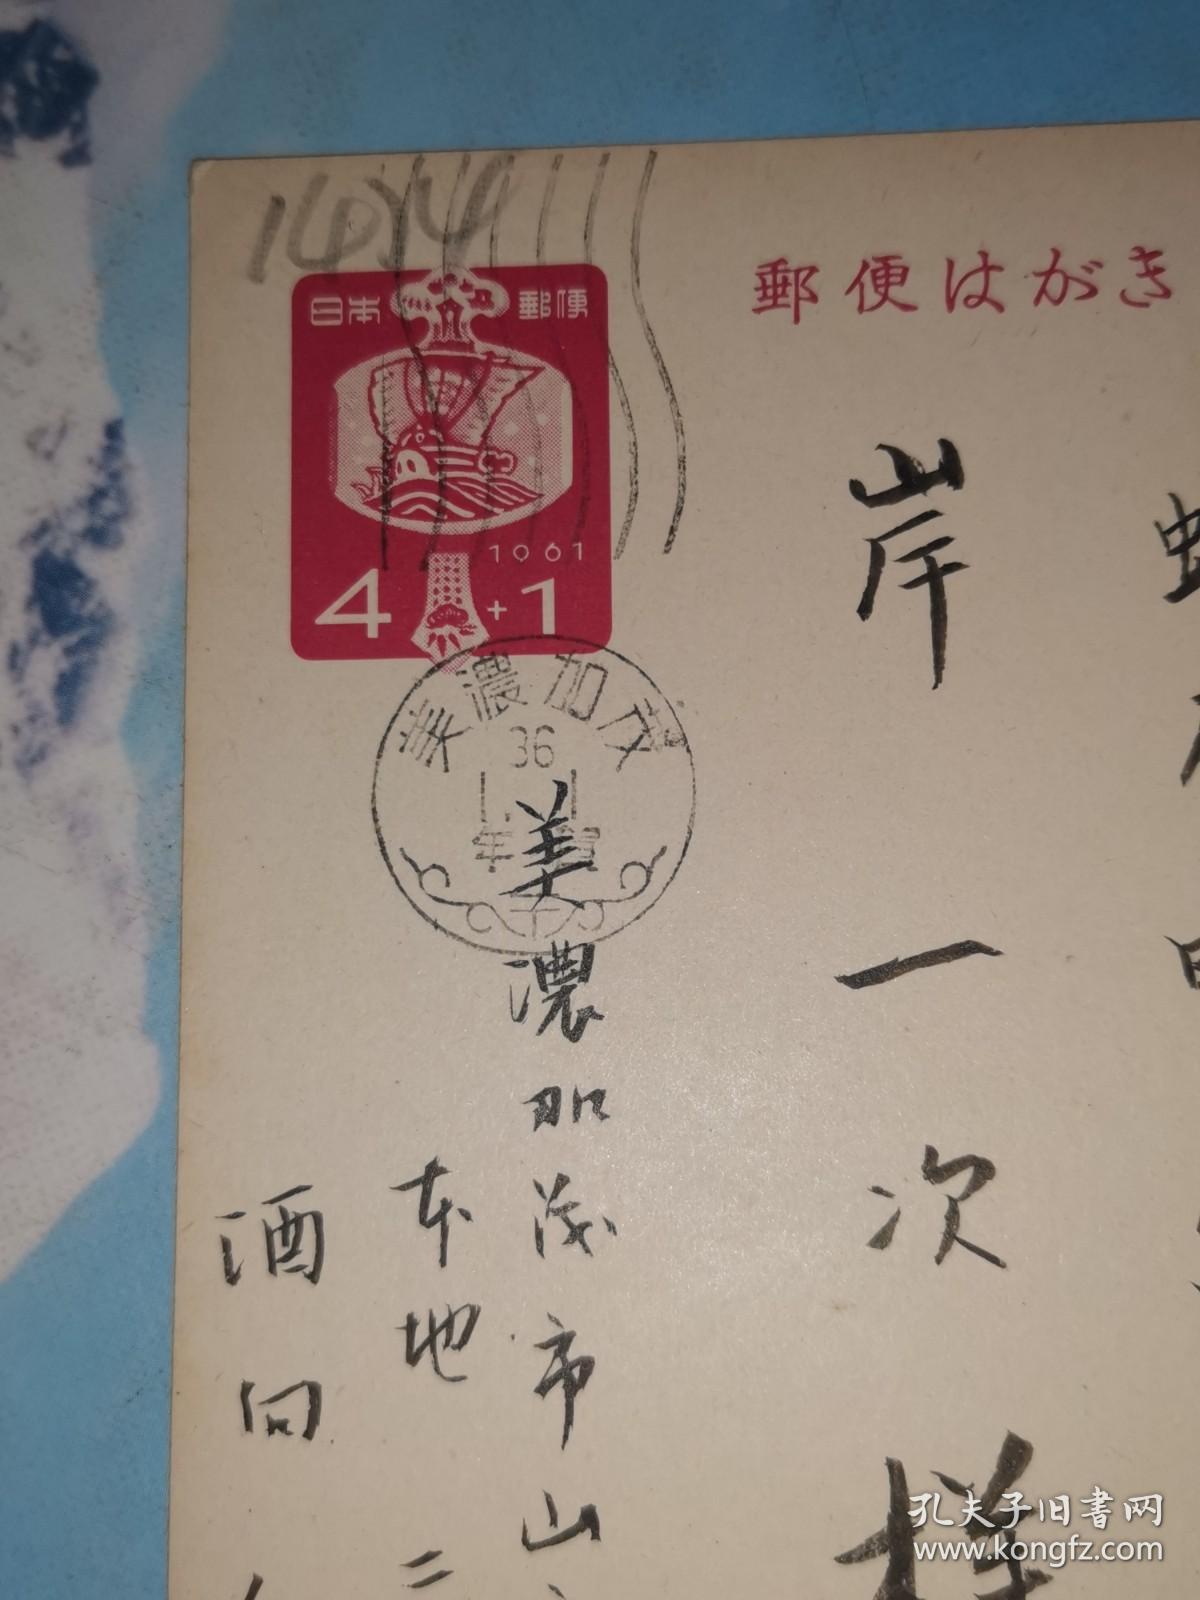 1014
日本 郵便
1961
4+1
郵便はがき
美濃加茂
36
1. 1
年賀
岸一次様
美濃加茂市山
本地二
酒向
孔夫子旧书网
www.kongfz.com